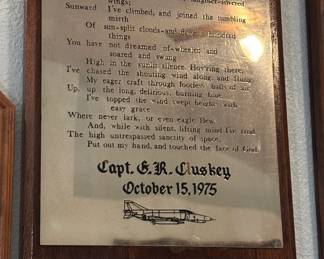 wings;
Sunward I've climbed, and joined the tumbling
mirth
Of sun-split clouds—and done a hundred
things
You have not dreamed of—wheeled and
soared and swung
High in the sunlit silence. Hov'ring there,
I've chased the shouting wind along and flung
My eager craft through footless halls of air.
Up, up the long, delirious, burning blue
I've topped the wind swept heights with
easy grace
Where never lark, or even eagle flew.
And, while with silent, lifting mind I've trod
The high untrespassed sanctity of space,
Put out my hand, and touched the face of God.
Capt. E. R. Cluskey
October 15, 1975